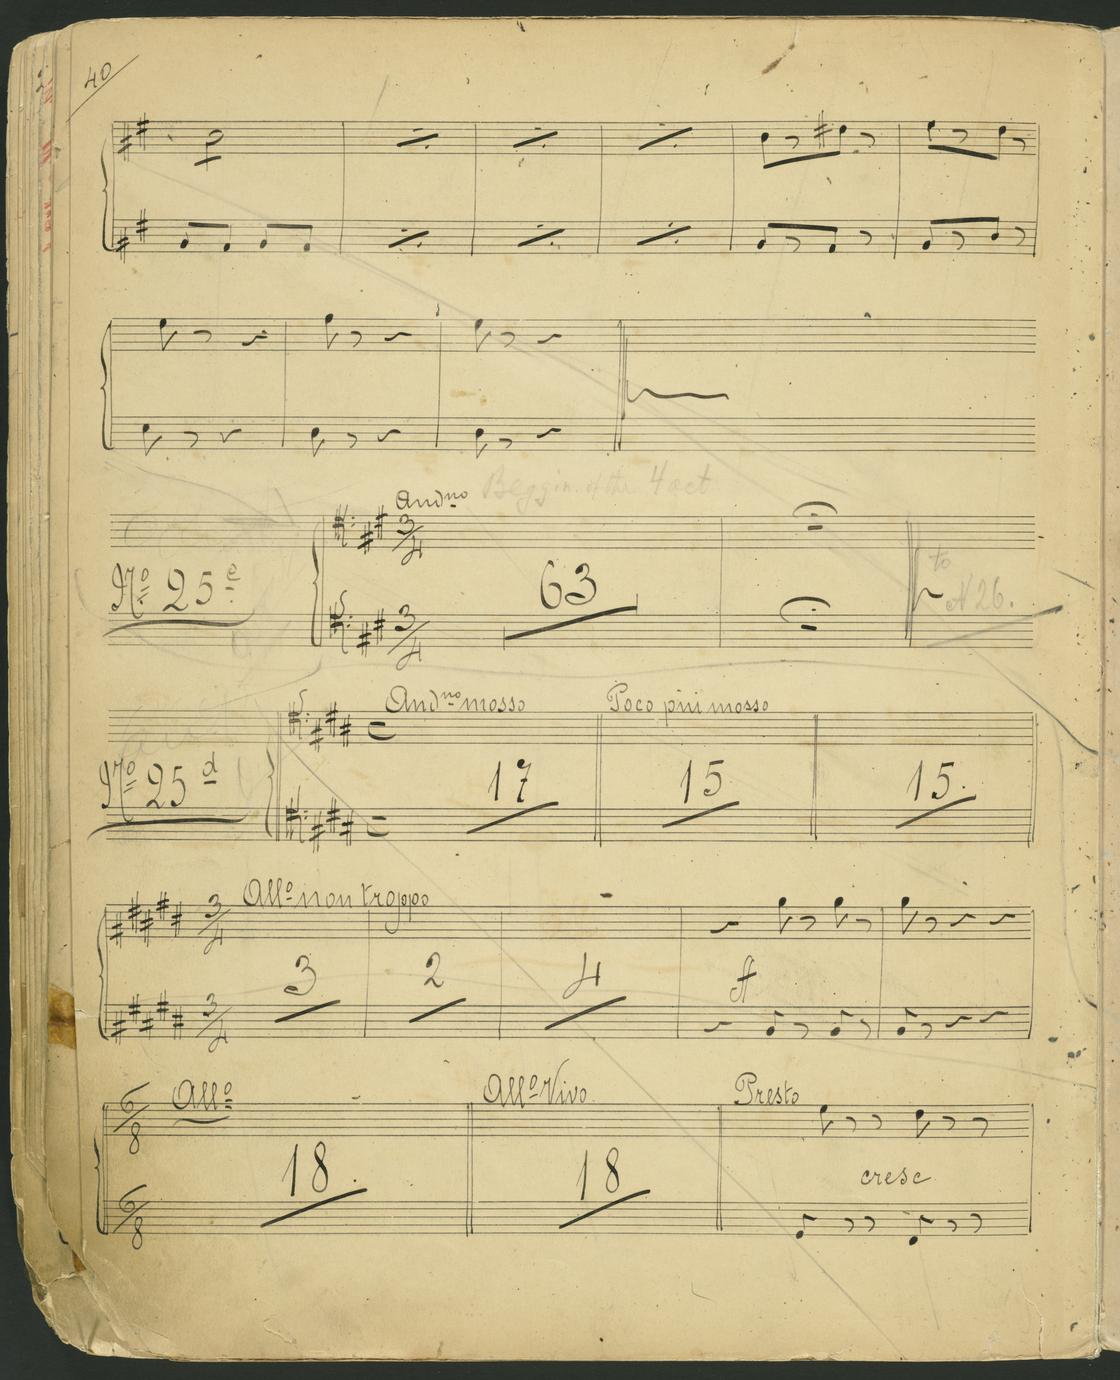 40
And.no Beggin. of the 4 act
3/4
No 25 e 63 to
3/4 N 26.
And.no mosso Poco più mosso
No 25 d 17 15 15.
All.o non troppo
3/4
3 2 4
3/4
All.o All.o Vivo Presto
6/8
18. 18 cresc
6/8